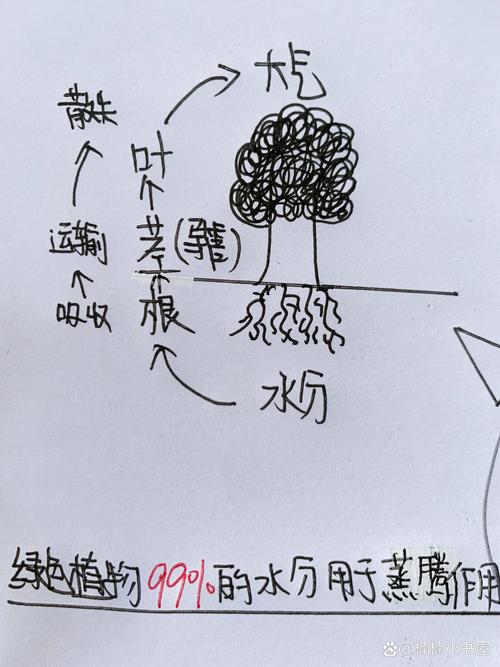 大气
散失
叶
运输
茎(导管)
吸收
根
水分
绿色植物99%的水分用于蒸腾作用
Bai百度 @楠楠小书屋